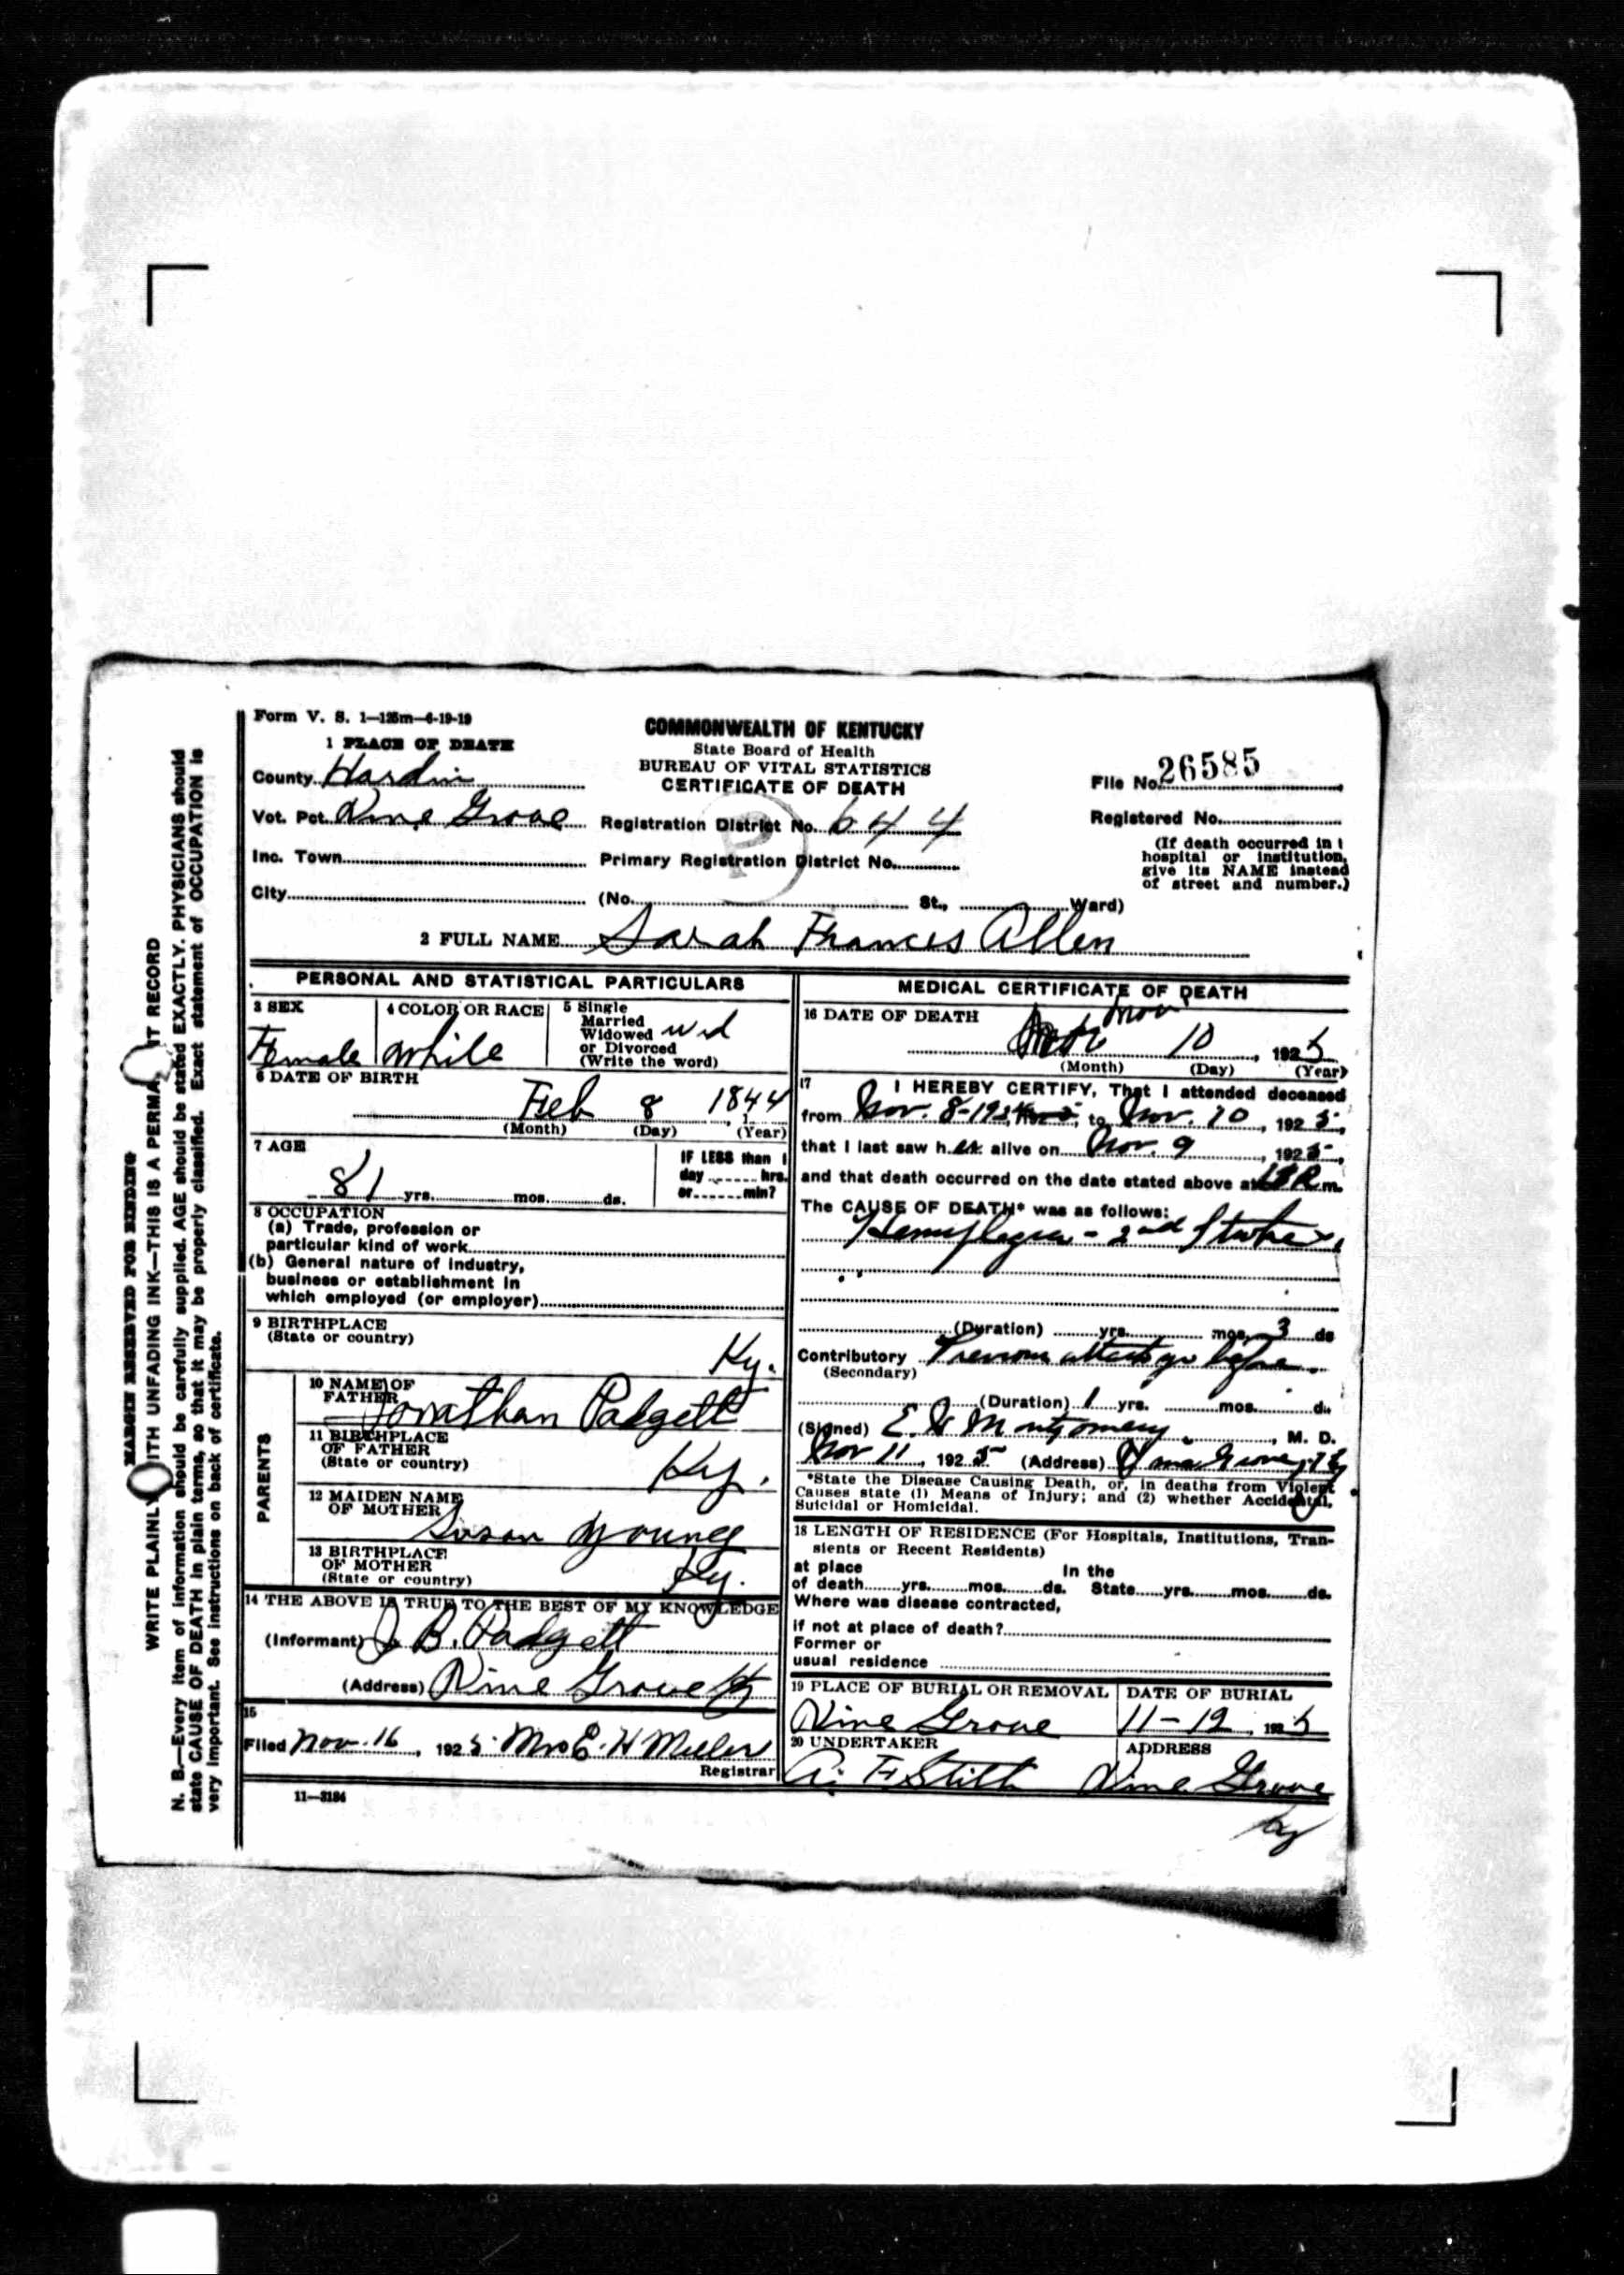 Form V. S. 1—125m—6-19-19
COMMONWEALTH OF KENTUCKY
State Board of Health
BUREAU OF VITAL STATISTICS
CERTIFICATE OF DEATH
1 PLACE OF DEATH
County Hardin
File No. 26585
Vot. Pct. Vine Grove
Registration District No. 644
Registered No.
Inc. Town
Primary Registration District No.
(If death occurred in a
hospital or institution,
give its NAME instead
of street and number.)
City (No. St., Ward)
P
2 FULL NAME Sarah Frances Allen
PERSONAL AND STATISTICAL PARTICULARS
3 SEX
Female
4 COLOR OR RACE
White
5 Single
Married
Widowed
or Divorced
(Write the word)
Wd
6 DATE OF BIRTH
Feb 8 1844
(Month) (Day) (Year)
7 AGE
81 yrs. mos. ds.
IF LESS than 1
day hrs.
or min?
8 OCCUPATION
(a) Trade, profession or
particular kind of work
(b) General nature of industry,
business or establishment in
which employed (or employer)
9 BIRTHPLACE
(State or country)
Ky.
PARENTS
10 NAME OF
FATHER
Jonathan Padgett
11 BIRTHPLACE
OF FATHER
(State or country)
Ky.
12 MAIDEN NAME
OF MOTHER
Susan Young
13 BIRTHPLACE
OF MOTHER
(State or country)
Ky.
14 THE ABOVE IS TRUE TO THE BEST OF MY KNOWLEDGE
(Informant) J B. Padgett
(Address) Vine Grove Ky
15
Filed Nov. 16, 1925. Mrs E. H Miller
Registrar
11—3184
MEDICAL CERTIFICATE OF DEATH
16 DATE OF DEATH
Nov 10, 1925
(Month) (Day) (Year)
17 I HEREBY CERTIFY, That I attended deceased
from Nov. 8-192 to Nov. 10, 1925,
that I last saw her alive on Nov. 9, 1925,
and that death occurred on the date stated above at m.
The CAUSE OF DEATH* was as follows:
Hemiplegia - 2nd Stroke
(Duration) yrs. mos. 3 ds
Contributory Previous attack yr before.
(Secondary)
(Duration) 1 yrs. mos. ds.
(Signed) E. Montgomery, M. D.
Nov 11, 1925 (Address) Vine Grove, Ky
*State the Disease Causing Death, or, in deaths from Violent
Causes state (1) Means of Injury; and (2) whether Accidental,
Suicidal or Homicidal.
18 LENGTH OF RESIDENCE (For Hospitals, Institutions, Tran-
sients or Recent Residents)
at place In the
of death yrs. mos. ds. State yrs. mos. ds.
Where was disease contracted,
if not at place of death?
Former or
usual residence
19 PLACE OF BURIAL OR REMOVAL
Vine Grove
DATE OF BURIAL
11-12, 1925
20 UNDERTAKER
A. F Stith
ADDRESS
Vine Grove
Ky
MARGIN RESERVED FOR BINDING
WRITE PLAINLY WITH UNFADING INK—THIS IS A PERMANENT RECORD
N. B.—Every item of information should be carefully supplied. AGE should be stated EXACTLY. PHYSICIANS should
state CAUSE OF DEATH in plain terms, so that it may be properly classified. Exact statement of OCCUPATION is
very important. See instructions on back of certificate.